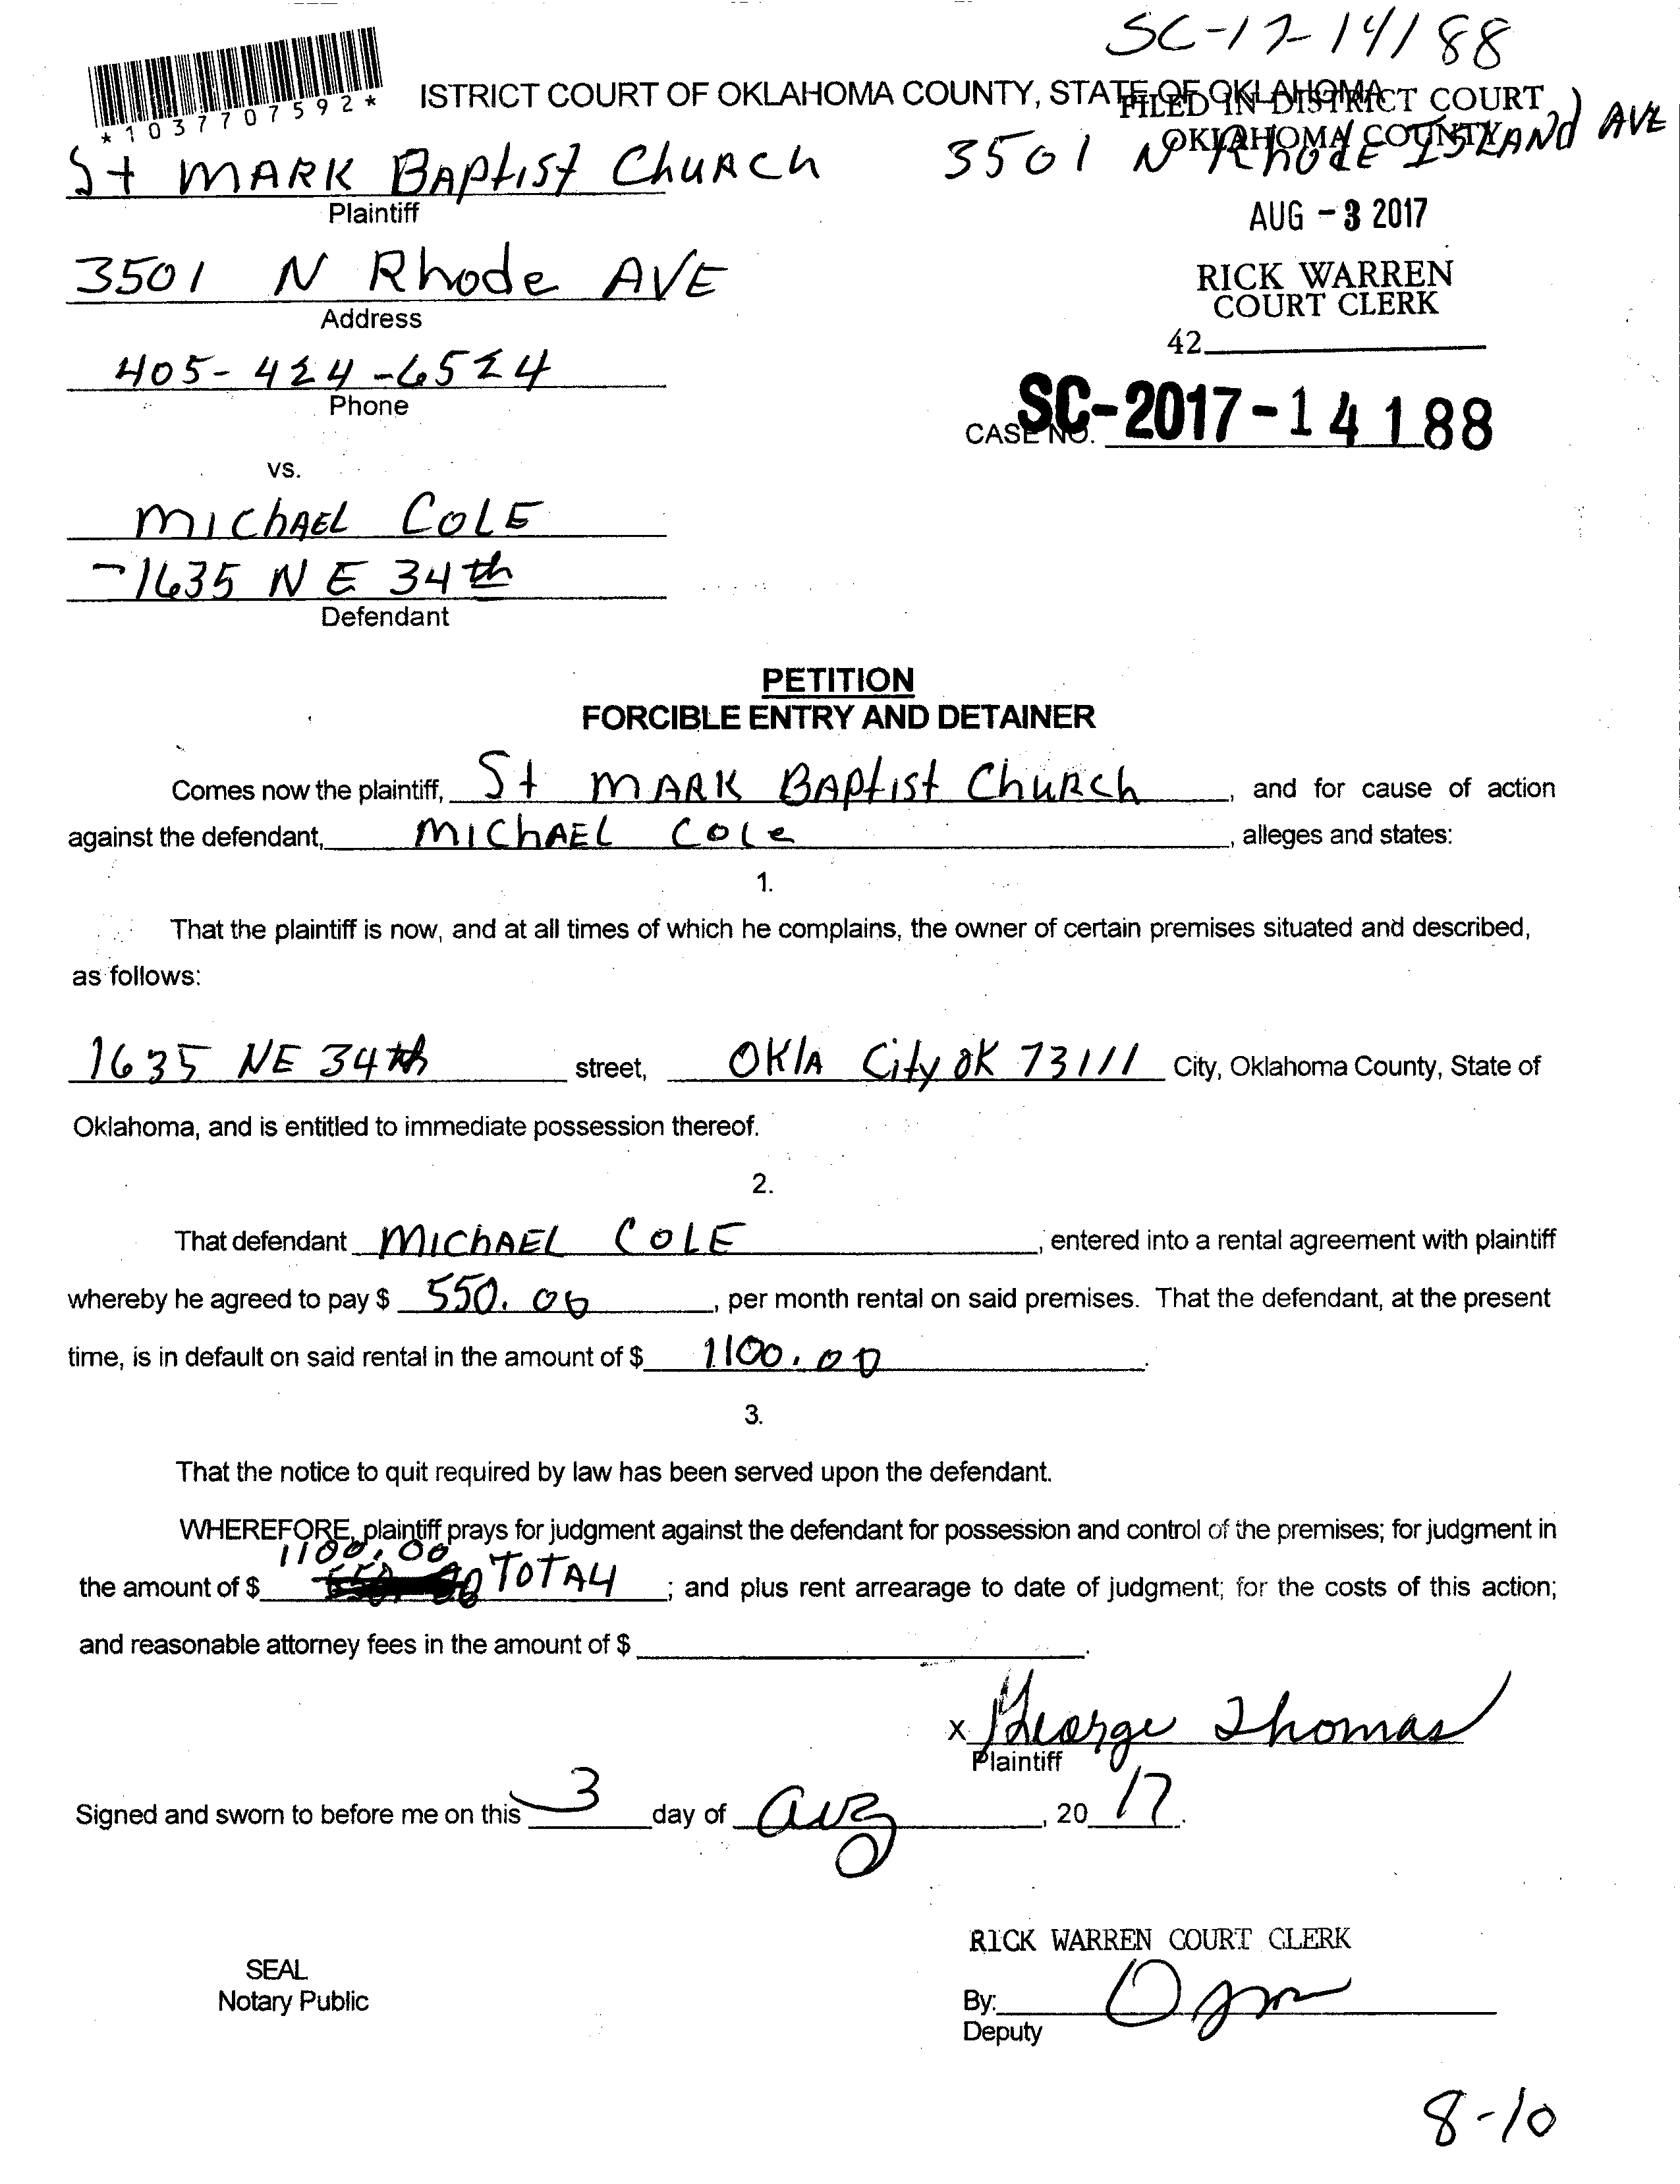 SC-17-14188
ISTRICT COURT OF OKLAHOMA COUNTY, STATE OF OKLAHOMA
FILED IN DISTRICT COURT
OKLAHOMA COUNTY
*1037707592*
St MARK BAptist ChuRch 3501 N Rhode ISLANd AVE
Plaintiff
AUG - 3 2017
3501 N Rhode AVE
Address
RICK WARREN
COURT CLERK
42
405-424-6524
Phone
CASE NO. SC-2017-14188
vs.
MIChAEL COLE
1635 NE 34th
Defendant
PETITION
FORCIBLE ENTRY AND DETAINER
Comes now the plaintiff, St MARK BAptist ChuRch, and for cause of action
against the defendant, MIChAEL COLe, alleges and states:
1.
That the plaintiff is now, and at all times of which he complains, the owner of certain premises situated and described,
as follows:
1635 NE 34th street, OKlA City OK 73111 City, Oklahoma County, State of
Oklahoma, and is entitled to immediate possession thereof.
2.
That defendant MIChAEL COLE, entered into a rental agreement with plaintiff
whereby he agreed to pay $ 550.00, per month rental on said premises. That the defendant, at the present
time, is in default on said rental in the amount of $ 1100.00.
3.
That the notice to quit required by law has been served upon the defendant.
WHEREFORE, plaintiff prays for judgment against the defendant for possession and control of the premises; for judgment in
1100.00
the amount of $ TOTAL; and plus rent arrearage to date of judgment; for the costs of this action;
and reasonable attorney fees in the amount of $.
X George Thomas
Plaintiff
Signed and sworn to before me on this 3 day of aug, 20 17.
RICK WARREN COURT CLERK
SEAL
Notary Public
By:
Deputy
8-10